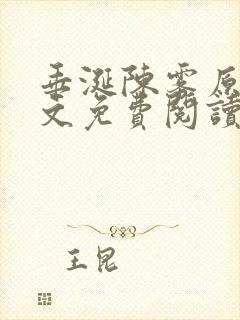 垂涎陳雾原
文免費閱讀
王昆